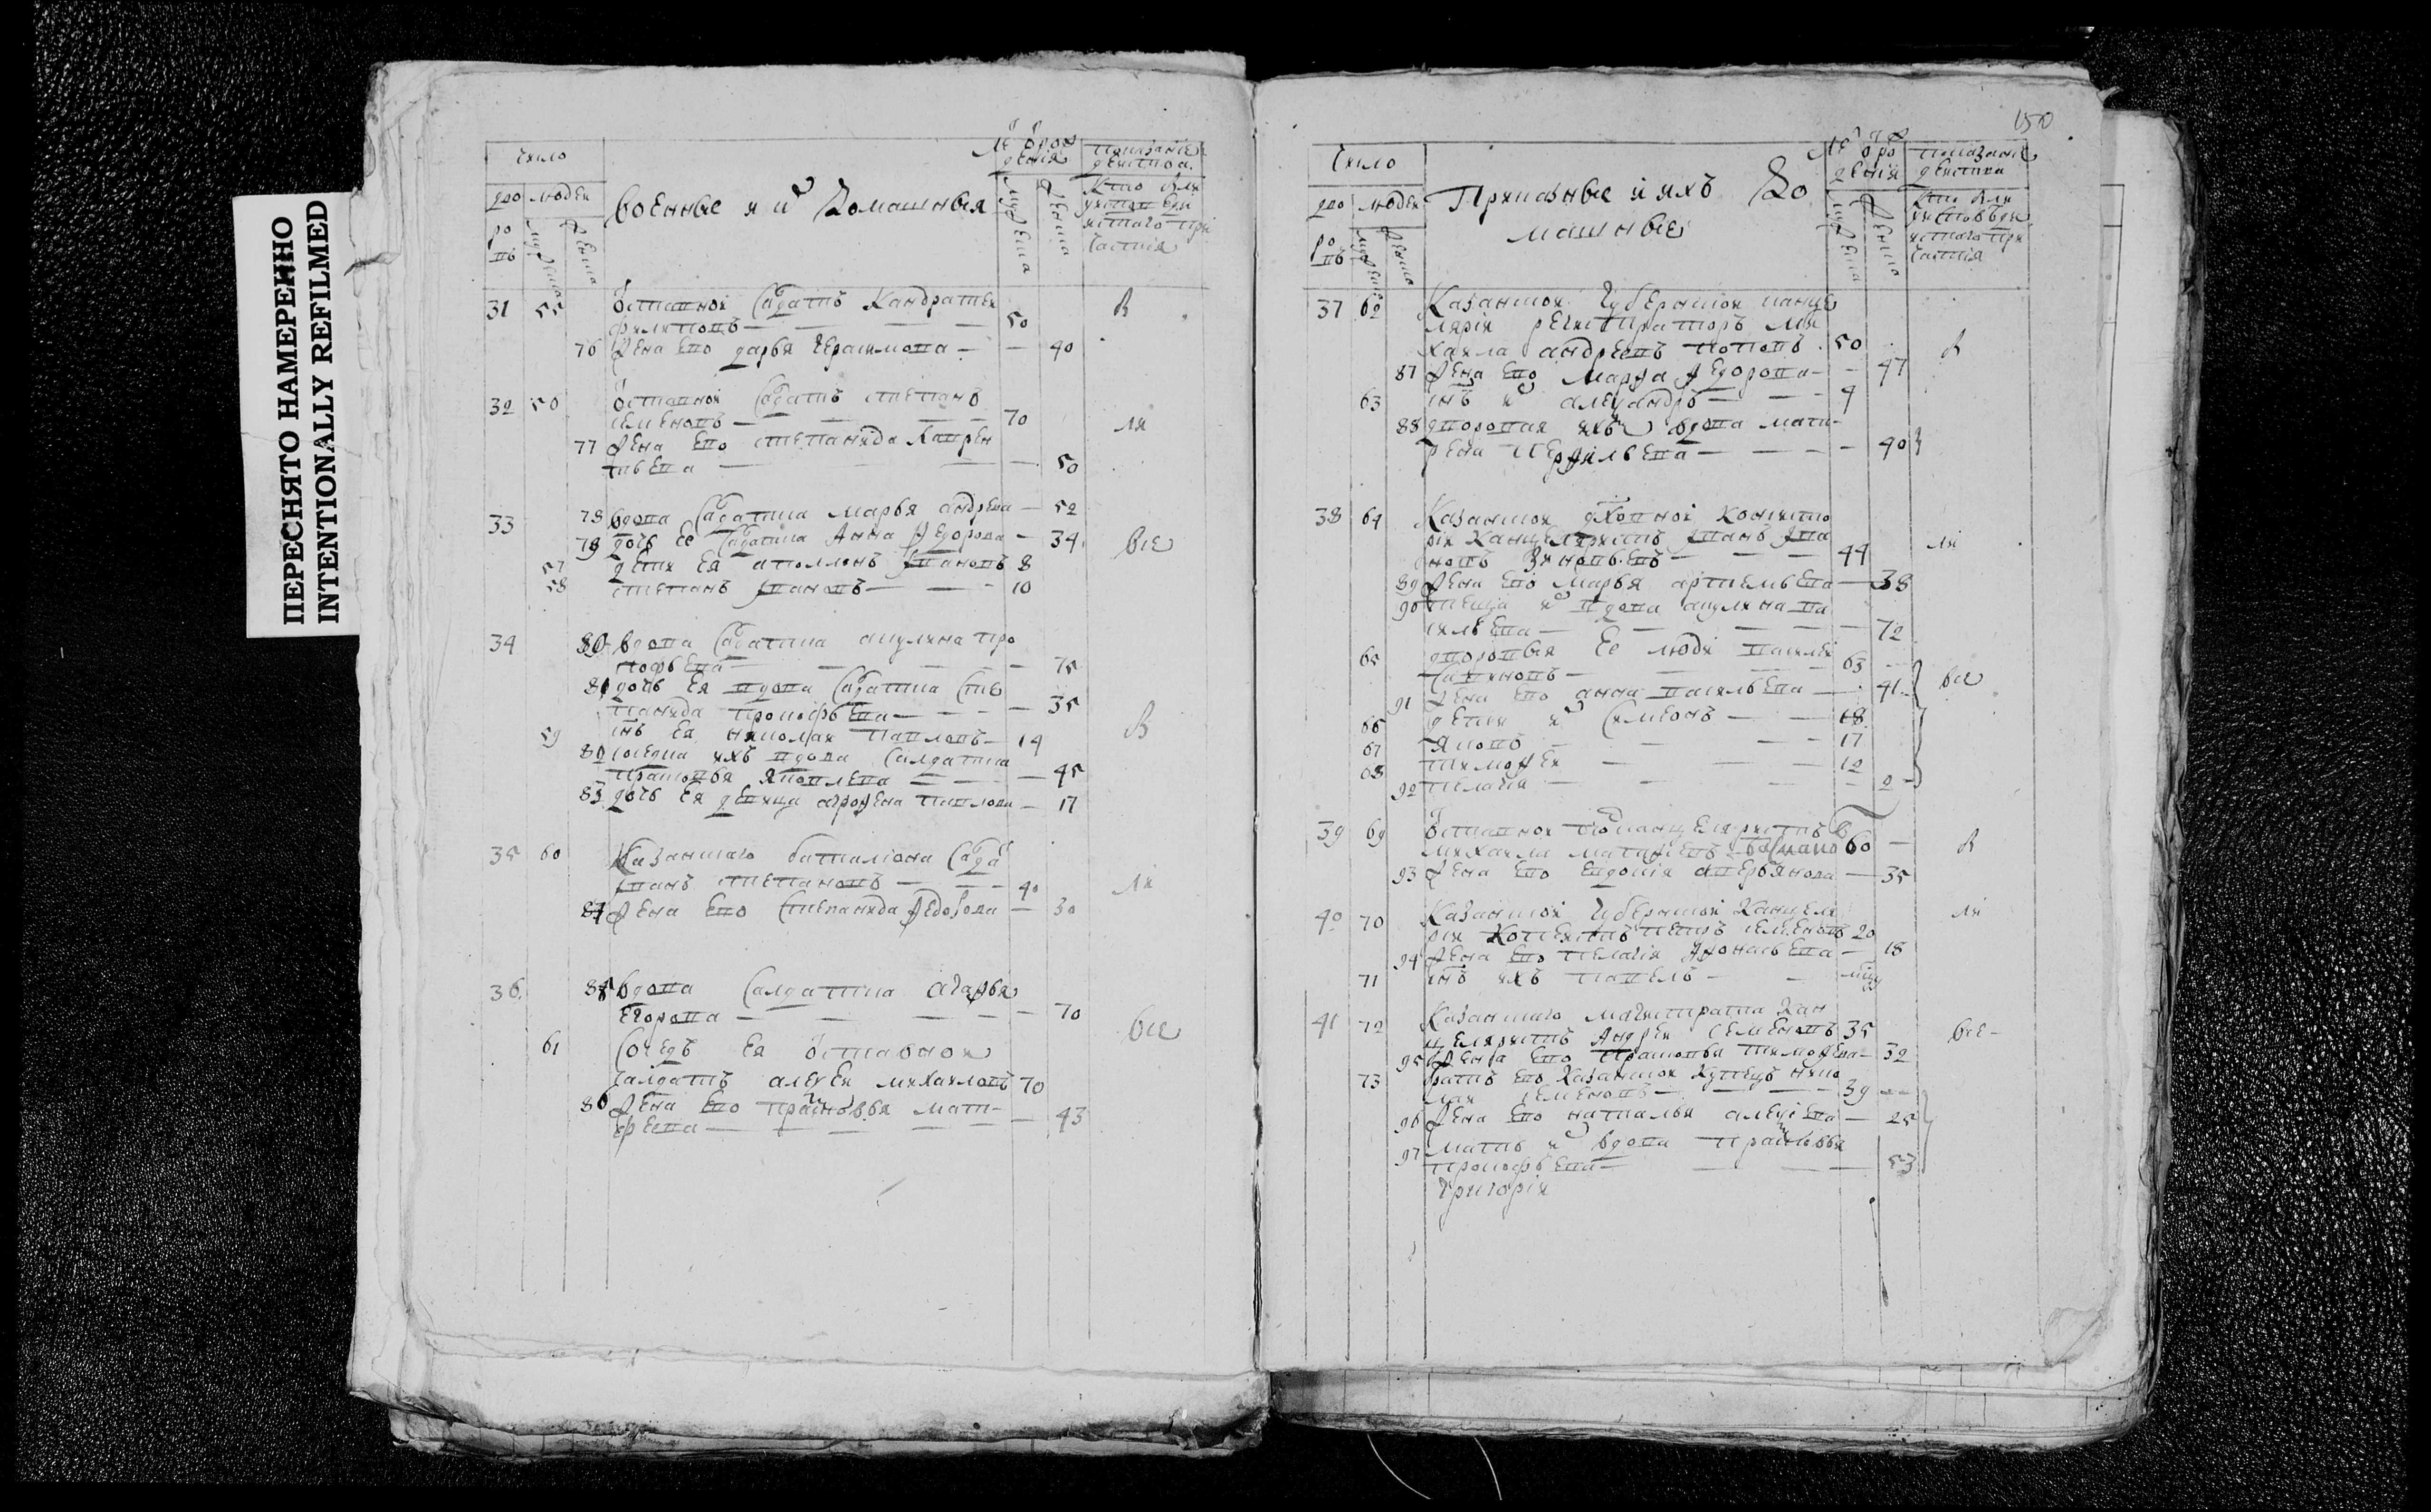 ПЕРЕСНЯТО НАМЕРЕННО
INTENTIONALLY REFILMED
Число
дво людей
ро
въ
военные и их домашныя
лѣ от рож
дения
показание
действа
кто был
у исповеди
и святаго при
частия
31 55 отставной салдатъ Кандратей
филиповъ — 50
76 жена ево дарья герасимова — 40
32 56 отставной салдатъ степанъ
семеновъ — 70
77 жена ево степанида лаврен
тьева — 50
33 78 вдова салдатка марья андреева — 52
79 дочь ее салдатка Анна Федорова — 34
все
57 дети ея аполлонъ Ивановъ 8
58 степанъ Ивановъ — 10
34 80 вдова салдатка акулина про
кофьева — 75
81 дочь ея вдова салдатка сте
панида прокофьева — 35
59 сынъ ея николай павловъ — 14
82 соседка ихъ вдова салдатка
прасковья яковлева — 45
83 дочь ея девица аграфена павлова — 17
35 60 Казанскаго баталиона салда
Иванъ степановъ — 40
84 жена ево степанида федорова — 30
36 85 вдова салдатка агафья
егорова — 70
все
61 соседъ ея отставной
салдатъ алексей михайловъ 70
86 жена ево прасковья мат-
феева — 43
150
Число
дво людей
ро
въ
Приказные и ихъ до
машные
лѣ от ро
дения
показание
действа
кто был
у исповеди
и святаго при
частия
37 62 Казанской губернской канце
лярии регистраторъ ми
хайла андреевъ поповъ 50
87 жена ево марфа федорова — 47
63 сынъ их александръ — 4
88 дворовая ихъ вдова мат-
рена — 40
38 64 Казанской духовной консисто
рии Канцеляристъ Иванъ Ива
новъ Зиновьевъ — 44
89 жена ево марья артемьева — 38
90 теща их вдова акулина ва
сильева — 72
65 дворовыя ее люди василей
— 63
91 жена ево анна васильева — 41
все
66 дети их симеонъ — 18
67 яковъ — 17
68 тимофей — 12
92 пелагия — 2
39 69 отставной подканцеляристъ
михайла матфеевъ 60
93 жена ево евдокия аверьянова — 35
40 70 Казанской губернской Канцеля
рии Копеистъ петръ семеновъ 20
94 жена ево пелагия Афонасьева — 18
71 сынъ ихъ павелъ —
41 72 Казанскаго магистрата Кан
целяристъ Андрей семеновъ 35
все
95 жена ево прасковья тимофеева — 32
73 братъ ево казанской купецъ нико
лай семеновъ — 39
96 жена ево наталья алексеева — 25
97 мать их вдова прасковья
прокофьева — 53
григорий